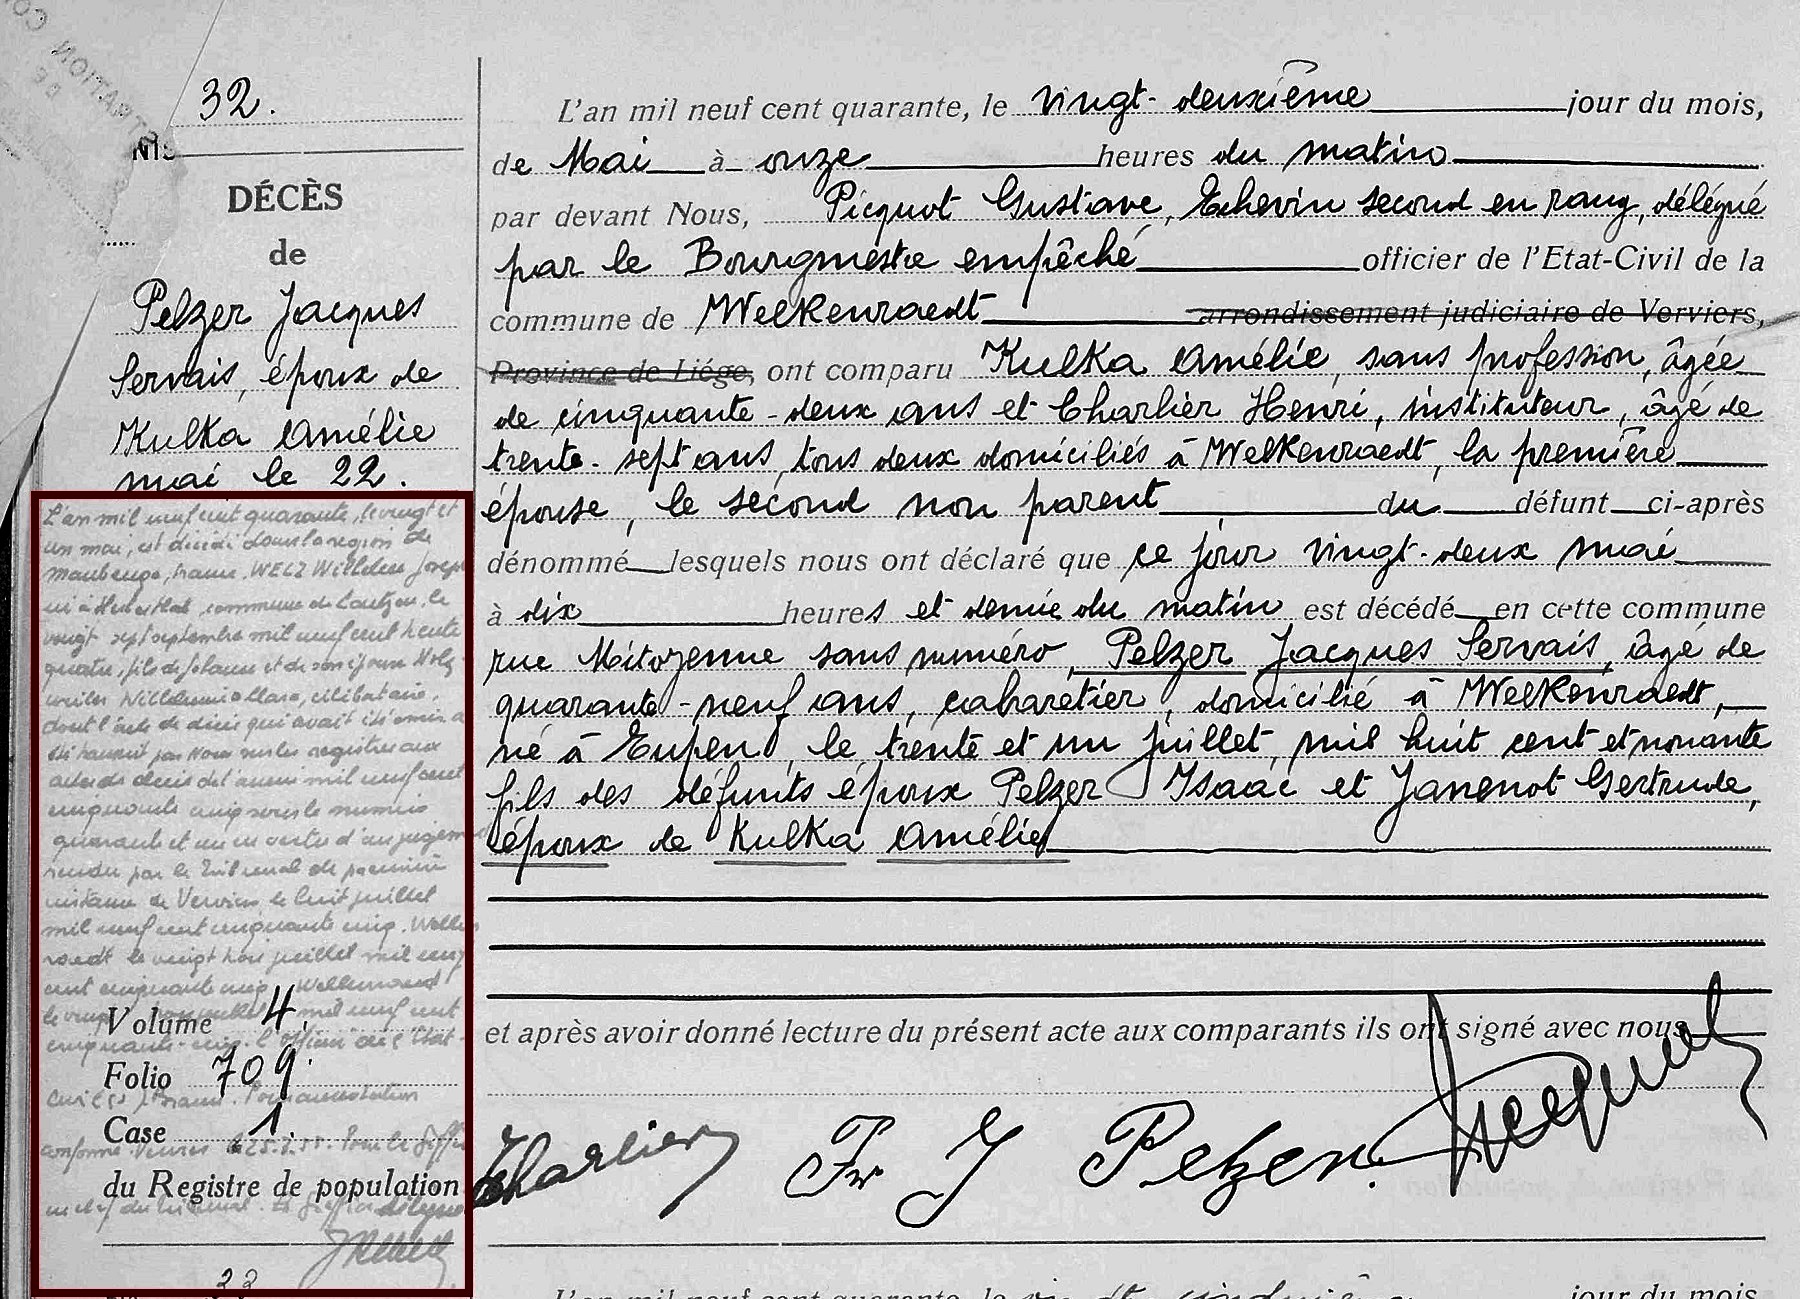 32.
DÉCÈS
de
Pelzer Jacques
Servais, époux de
Kulka Amélie
mai le 22.
L'an mil neuf cent quarante, le vingt et
un mai, est décédé dans la region de
Maubeuge, France, WELZ Wilhelm Joseph
né à Herbesthal, commune de Lontzen, le
vingt sept septembre mil neuf cent trente
quatre, fils de Johann et de son épouse
célibataire,
dont l'acte de décès qui avait été omis a
été par Nous sur les registres aux
actes de décès de l'année mil neuf cent
cinquante cinq sous le numéro
quarante et un en vertu d'un jugement
rendu par le Tribunal de première
instance de Verviers le huit juillet
mil neuf cent cinquante cinq. Welken
raedt le vingt juillet mil neuf
cent cinquante cinq Welkenraedt
le mil neuf cent
cinquante-cinq. L'officier de l'Etat-
Civil (s) Pour annotation
conforme. Verviers le 25.7.55. Pour le Greffier
en chef du Tribunal. Le Greffier délégué
Volume 4.
Folio 709.
Case 1.
du Registre de population
33
L'an mil neuf cent quarante, le vingt-deuxième jour du mois,
de Mai à onze heures du matin
par devant Nous, Picquot Gustave, Echevin second en rang, délégué
par le Bourgmestre empêché officier de l'Etat-Civil de la
commune de Welkenraedt arrondissement judiciaire de Verviers,
Province de Liége, ont comparu Kulka Amélie, sans profession, âgée
de cinquante-deux ans et Charlier Henri, instituteur, âgé de
trente-sept ans, tous deux domiciliés à Welkenraedt, la première
épouse, le second non parent du défunt ci-après
dénommé lesquels nous ont déclaré que ce jour vingt-deux mai
à dix heures et demie du matin est décédé en cette commune
rue Mitoyenne sans numéro, Pelzer Jacques Servais, âgé de
quarante-neuf ans, cabaretier, domicilié à Welkenraedt,
né à Eupen, le trente et un juillet, mil huit cent et nonante
fils des défunts époux Pelzer Isaac et Janenot Gertrude,
époux de Kulka Amélie
et après avoir donné lecture du présent acte aux comparants ils ont signé avec nous
Charlier Fr J Pelzer. Picquot
L'an mil neuf cent quarante, le jour du mois